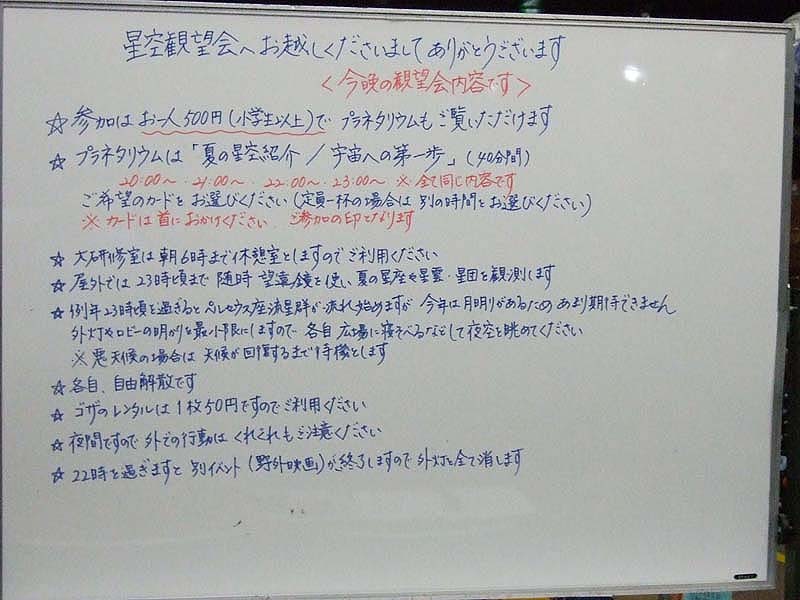 星空観望会へお越しくださいましてありがとうございます
<今晩の観望会内容です>
☆ 参加はお一人500円(小学生以上)で プラネタリウムもご覧いただけます
☆ プラネタリウムは「夏の星空紹介 / 宇宙への第一歩」(40分間)
20:00~・21:00~・22:00~・23:00~ ※全て同じ内容です
ご希望のカードをお選びください(定員一杯の場合は 別の時間をお選びください)
※ カードは首におかけください ご参加の印となります
☆ 大研修室は朝6時まで休憩室としますのでご利用ください
☆ 屋外では23時頃まで 随時 望遠鏡を使い夏の星座や星雲・星団を観測します
☆ 例年23時頃を過ぎるとペルセウス座流星群が流れ始めますが 今年は月明りがあるため あまり期待できません
外灯やロビーの明かりを最小限にしますので 各自広場に寝そべるなどして夜空を眺めてください
※悪天候の場合は 天候が回復するまで待機とします
☆ 各自、自由解散です
☆ ゴザのレンタルは1枚50円ですのでご利用ください
☆ 夜間ですので外での行動は くれぐれもご注意ください
☆ 22時を過ぎますと 別イベント(野外映画)が終了しますので 外灯を全て消します